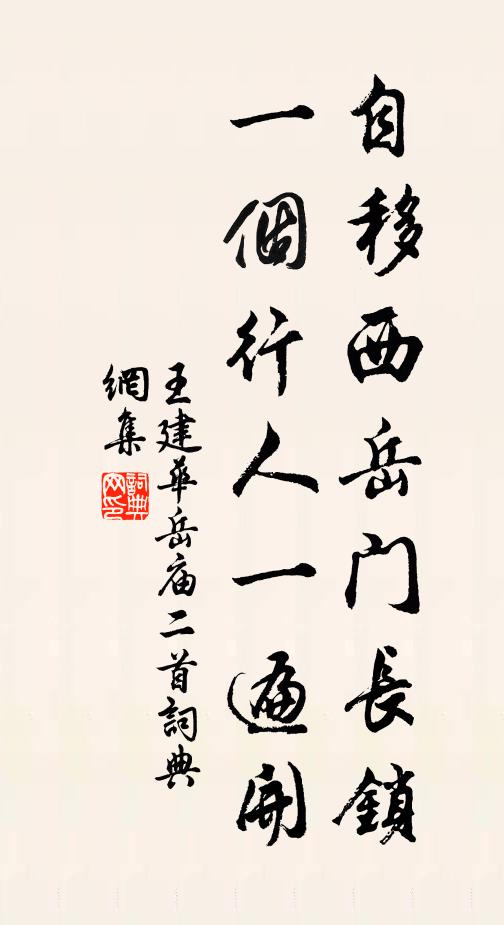 自移西岳門長鎖
一個行人一遍開
王建華岳庙二首詞典
網集
詞典网印